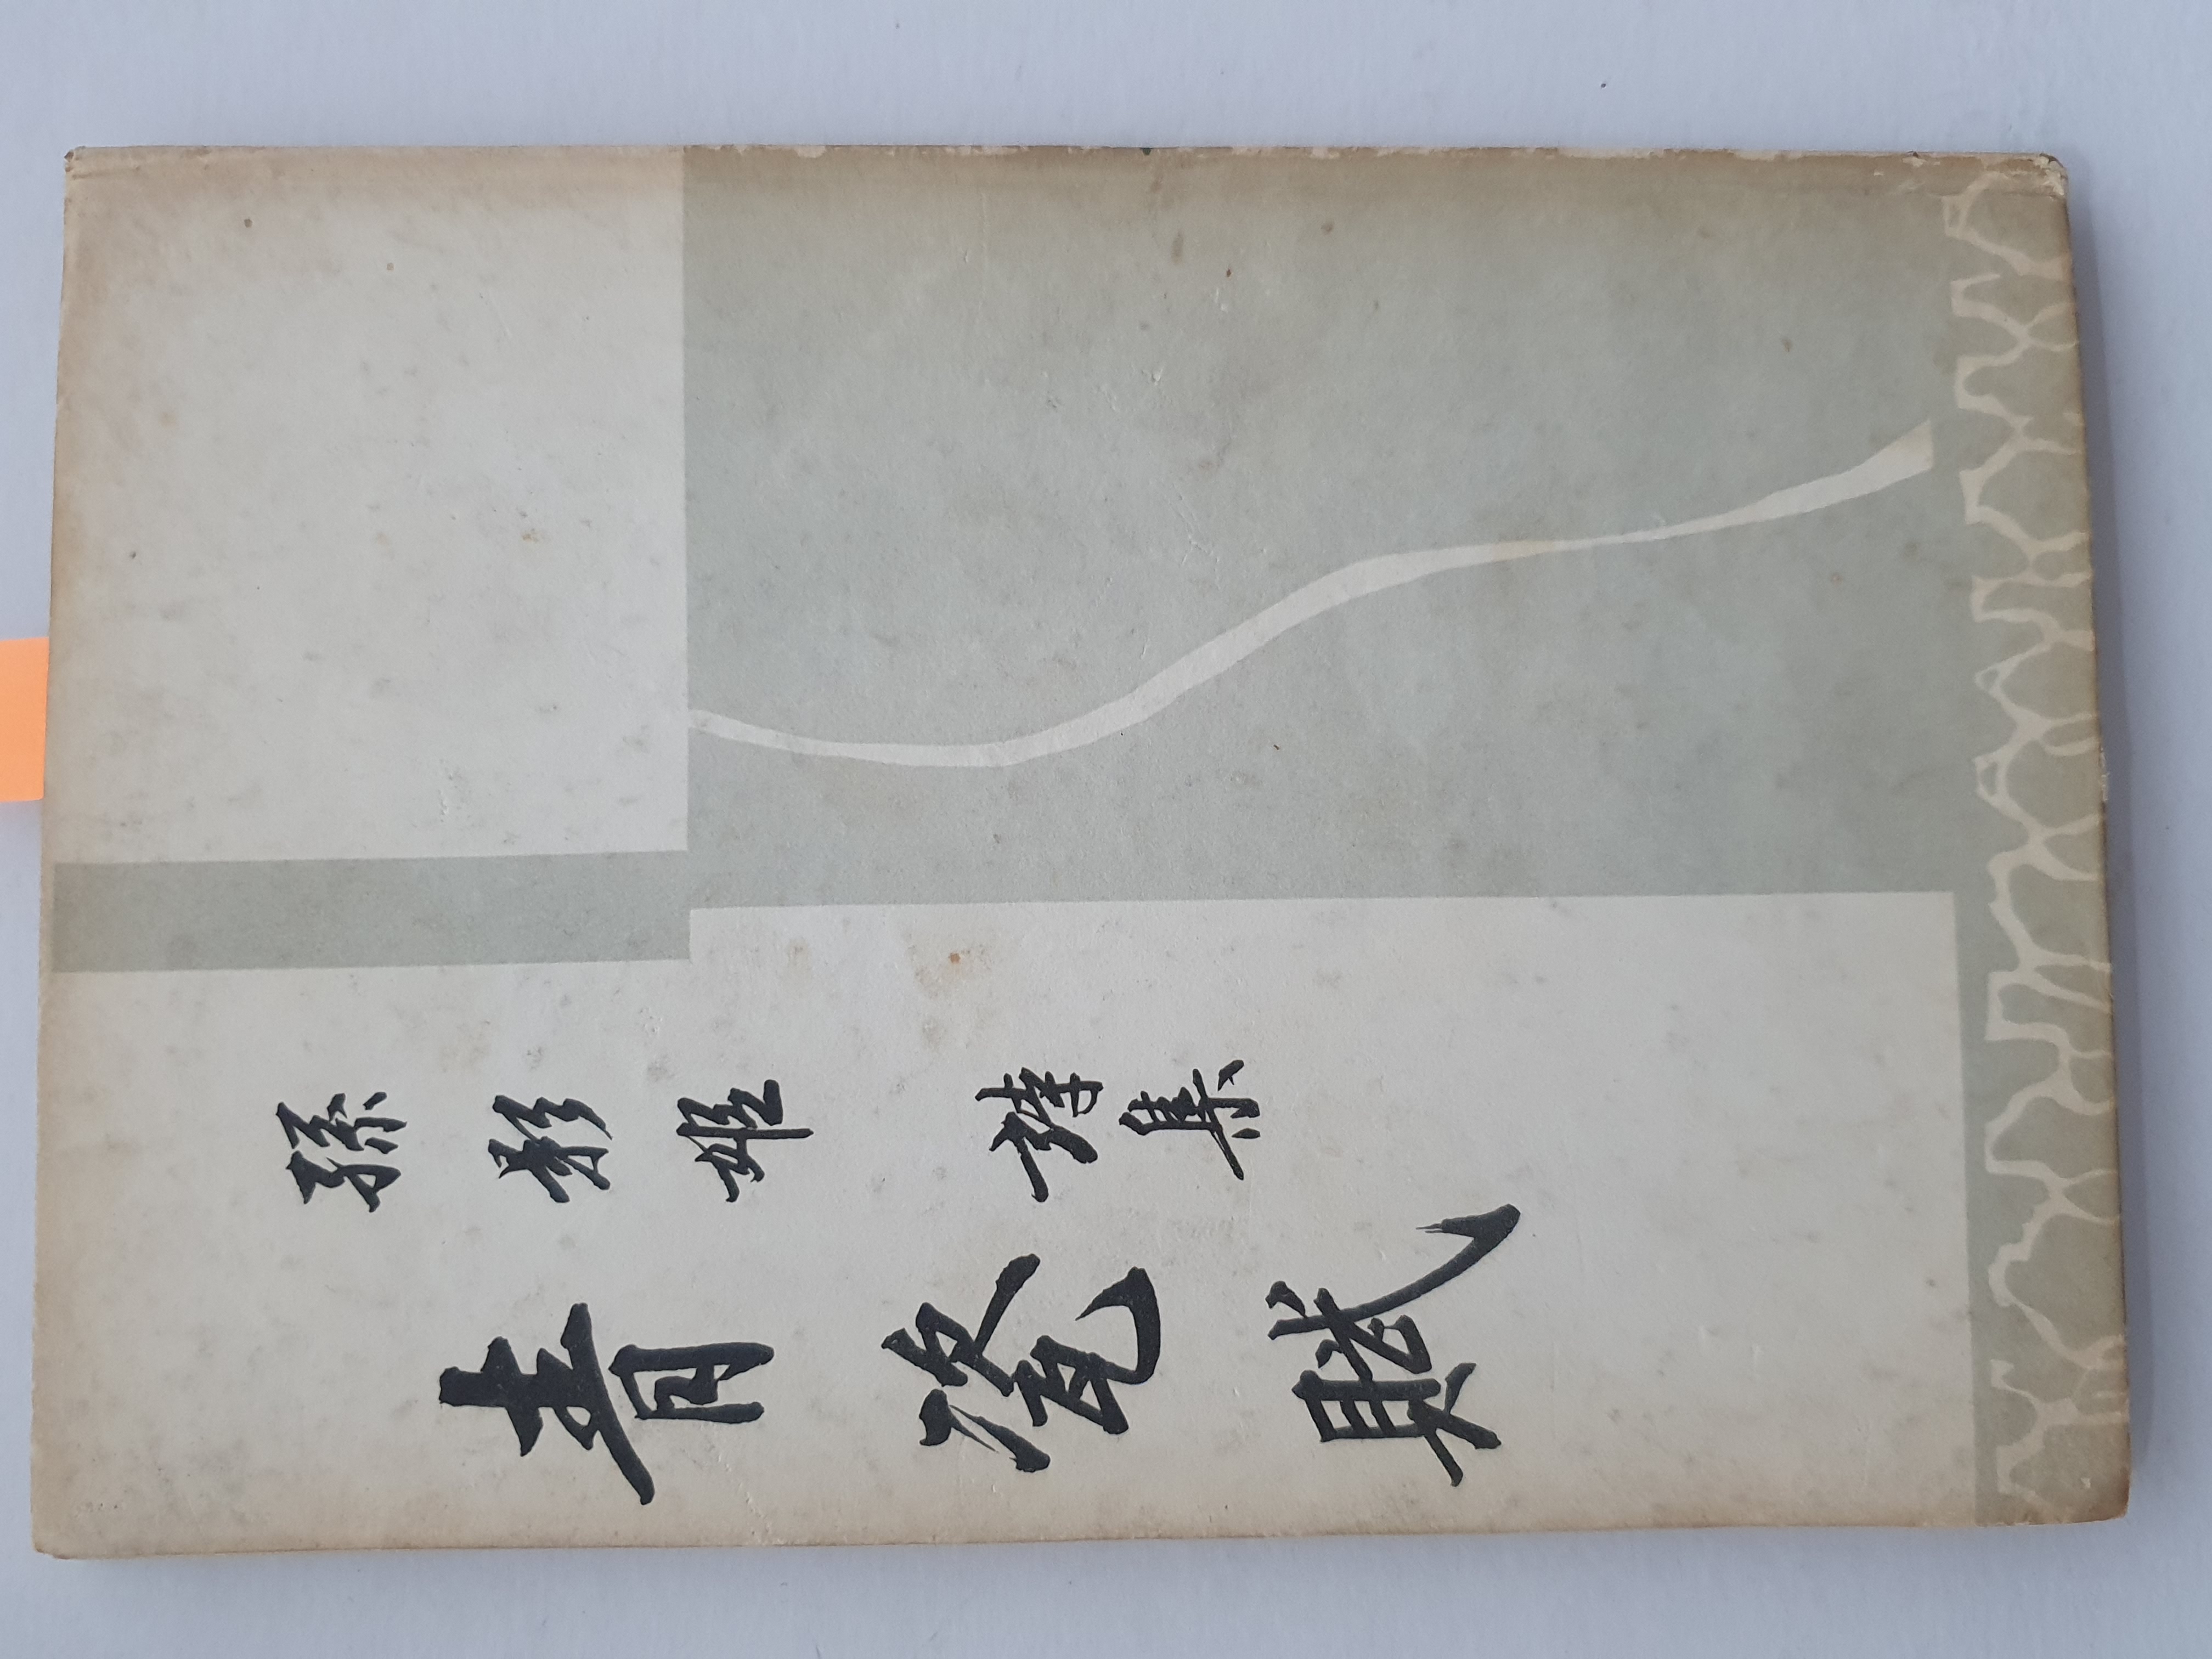 孫杉姬 詩集
青瓷賦